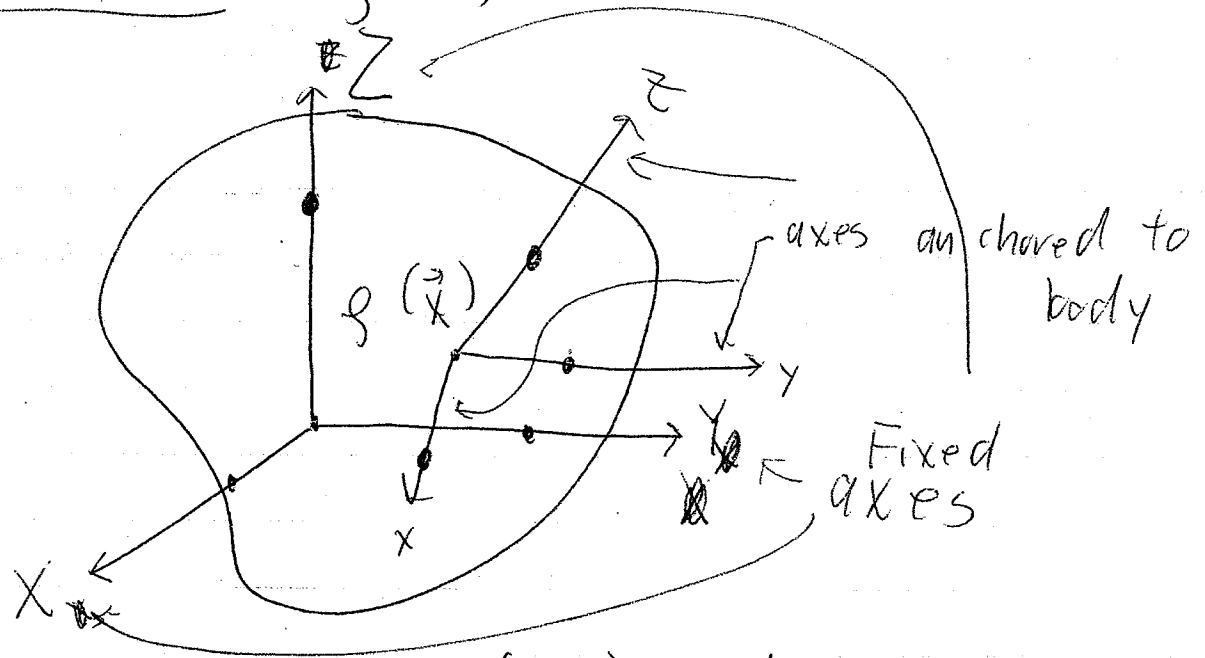 Z
z
axes anchored to
body
ρ(x⃗)
y
Y
Fixed
axes
x
X